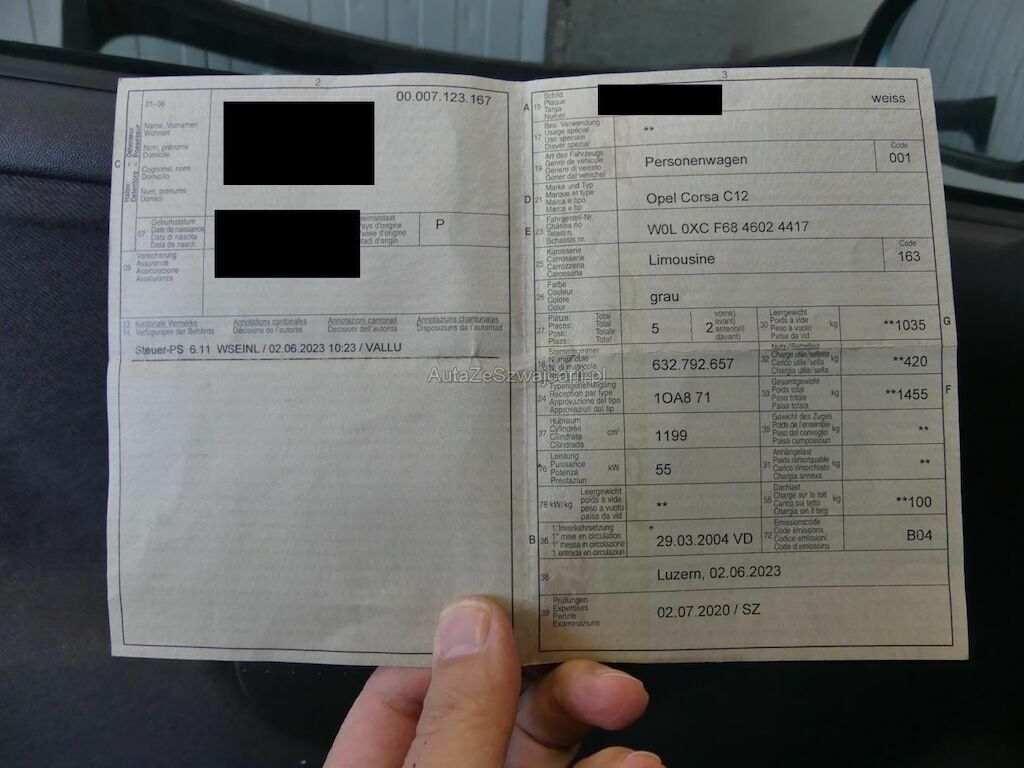 2
01–06
00.007.123.167
Name, Vornamen
Wohnort
Nom, prénoms
Domicile
Cognome, nomi
Domicilio
Num, prenums
Domicil
C
Halter – Détenteur
Detentore – Possessur
07
Geburtsdatum
Date de naissance
Data di nascita
Data da nasch.
Heimatstaat
Pays d'origine
Paese d'origine
Stadi d'origin
P
09
Versicherung
Assurance
Assicurazione
Assicuranza
13
14
Kantonale Vermerke
Verfügungen der Behörde
Annotations cantonales
Décisions de l'autorité
Annotazioni cantonali
Decisioni dell'autorità
Annotaziuns chantunalas
Disposiziuns da l'autoritad
Steuer-PS 6.11 WSEINL / 02.06.2023 10:23 / VALLU
AutaZeSzwajcarii.pl
3
A
15
Schild
Plaque
Targa
Numer
weiss
17
Bes. Verwendung
Usage spécial
Uso speciale
Diever spezial
**
19
Art des Fahrzeugs
Genre de véhicule
Genere di veicolo
Gener dal vehichel
Personenwagen
Code
001
D
21
Marke und Typ
Marque et type
Marca e tipo
Marca e tip
Opel Corsa C12
E
23
Fahrgestell-Nr.
Châssis no
Telaio n.
Schassis nr.
W0L 0XC F68 4602 4417
25
Karosserie
Carrosserie
Carrozzeria
Carossaria
Limousine
Code
163
26
Farbe
Couleur
Colore
Colur
grau
27
Plätze: Total
Places: Total
Posti: Totale
Plazs: Total
5
( 2
vorne)
avant)
anteriori)
davant)
30
Leergewicht
Poids à vide
Peso a vuoto
Paisa da vid
kg
**1035
G
18
Stammnummer
N° matricule
N. di matricola
632.792.657
32
Nutz-/Sattellast
Charge utile/sellette
Carico utile/sella
Chargia utila/sella
kg
**420
24
Typengenehmigung
Réception par type
Approvazione del tipo
Approvaziun dal tip
1OA8 71
33
Gesamtgewicht
Poids total
Peso totale
Paisa totala
kg
**1455
F
37
Hubraum
Cylindrée
Cilindrata
Cilindrada
cm³
1199
35
Gewicht des Zuges
Poids de l'ensemble
Peso del convoglio
Paisa cumposiziun
kg
**
76
Leistung
Puissance
Potenza
Prestaziun
kW
55
31
Anhängelast
Poids remorquable
Carico rimorchiato
Chargia annexa
kg
**
78 kW/kg
Leergewicht
poids à vide
peso a vuoto
paisa da vid
**
55
Dachlast
Charge sur le toit
Carico sul tetto
Chargia sin il tetg
kg
**100
B
36
1. Inverkehrsetzung
1re mise en circulation
1a messa in circolazione
1. entrada en circulaziun
*
29.03.2004 VD
72
Emissionscode
Code émissions
Codice emissioni
Code d'emissiuns
B04
38
Luzern, 02.06.2023
39
Prüfungen
Expertises
Perizie
Examinaziuns
02.07.2020 / SZ